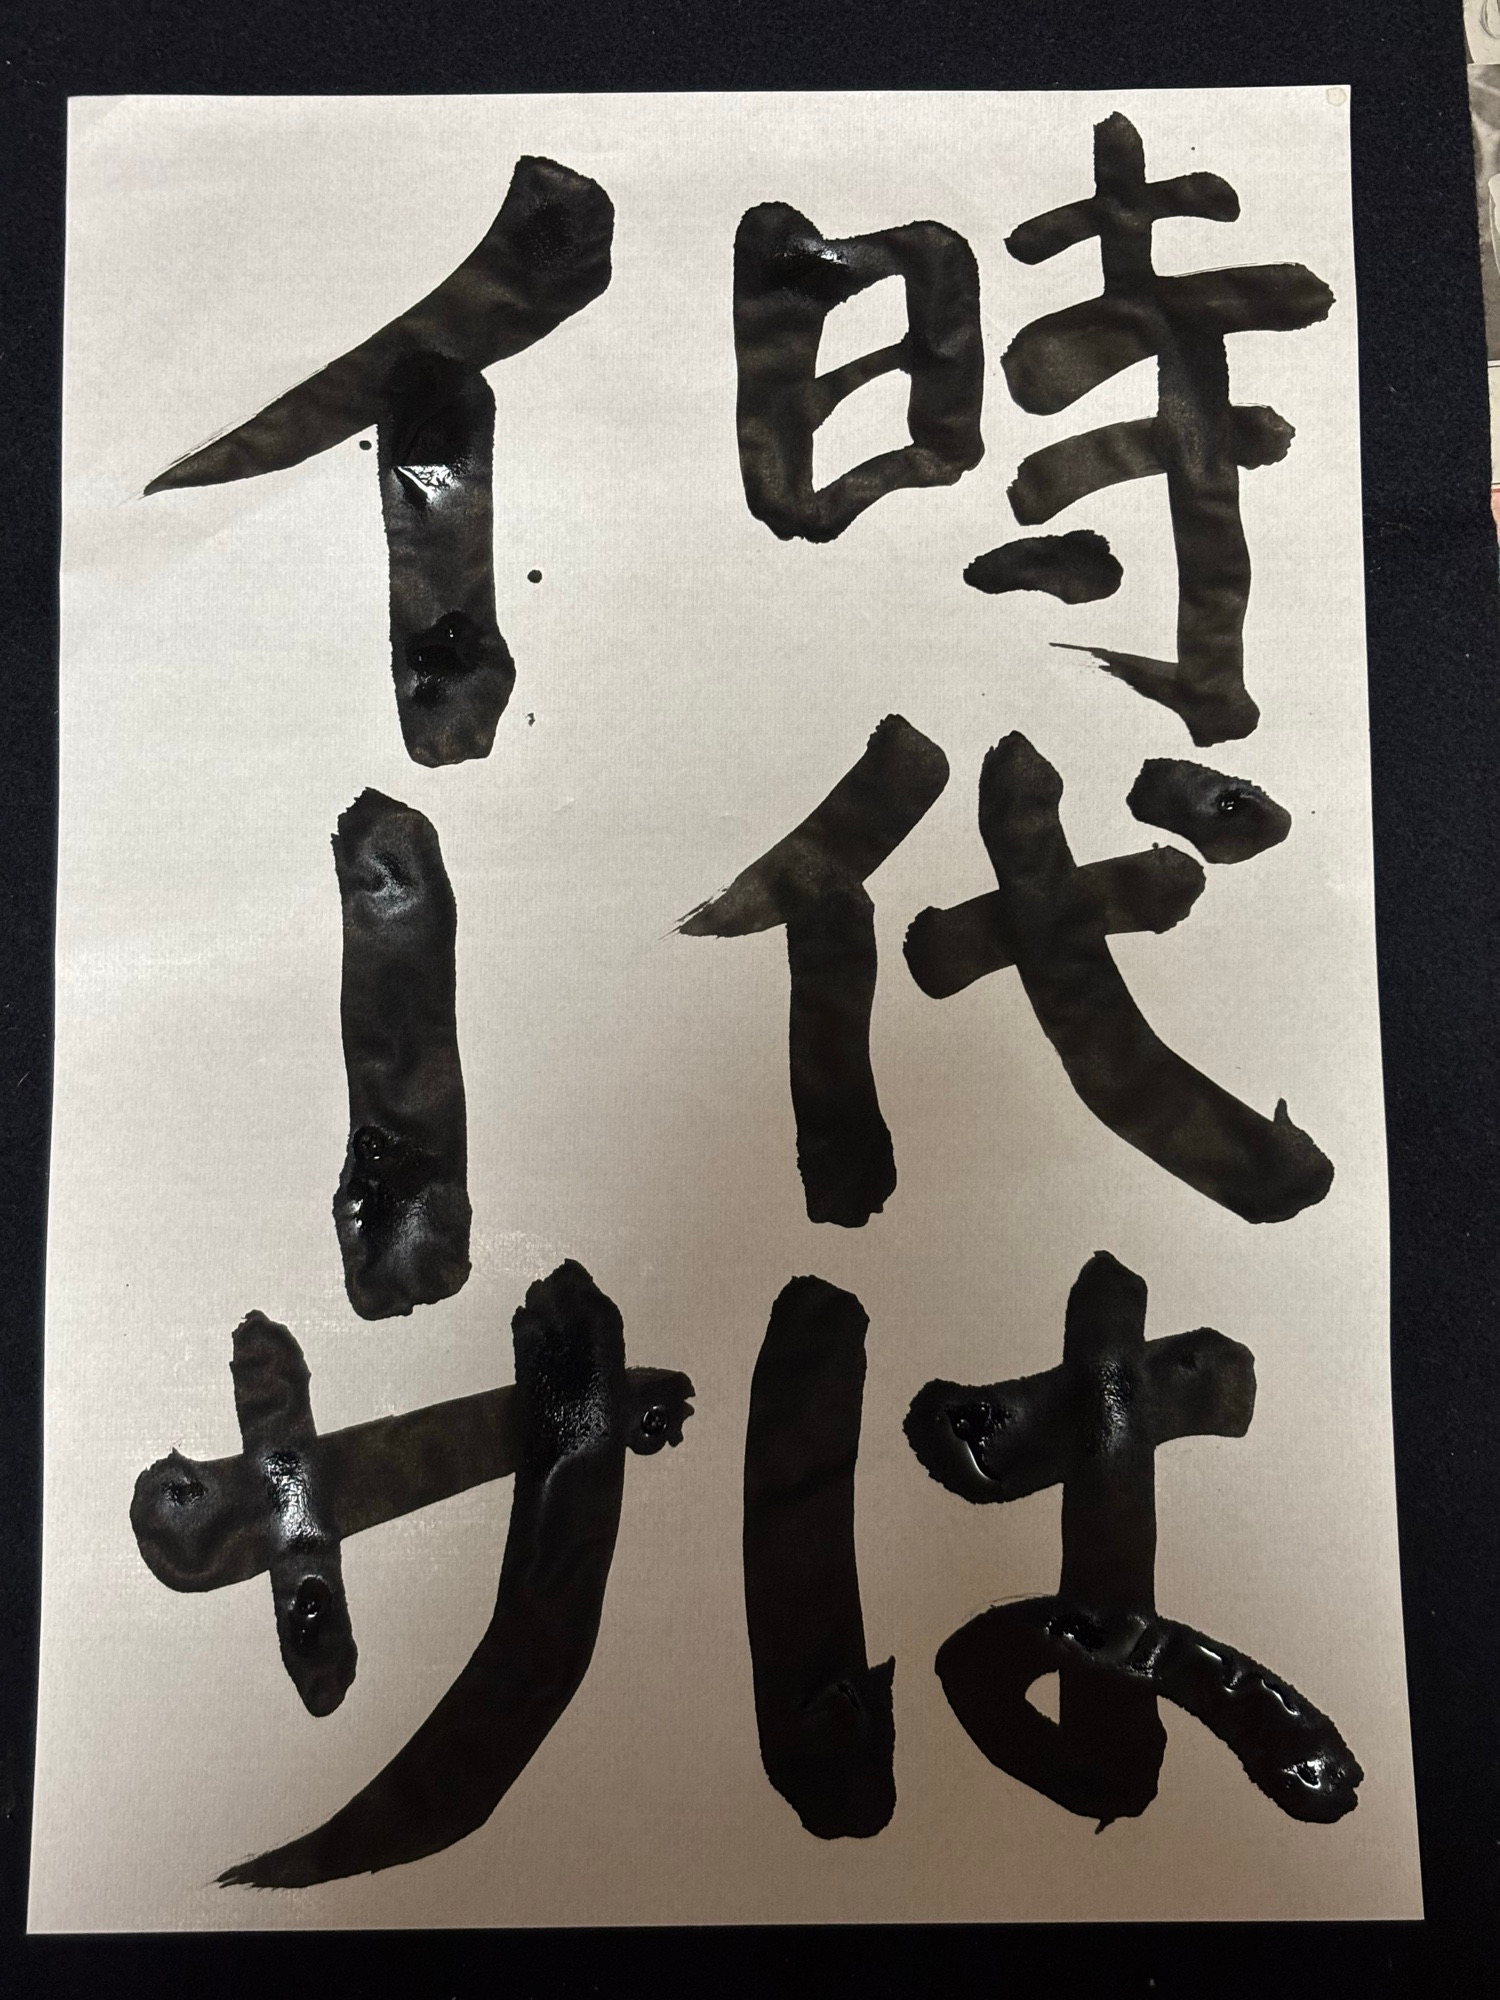 時代は
イーサ